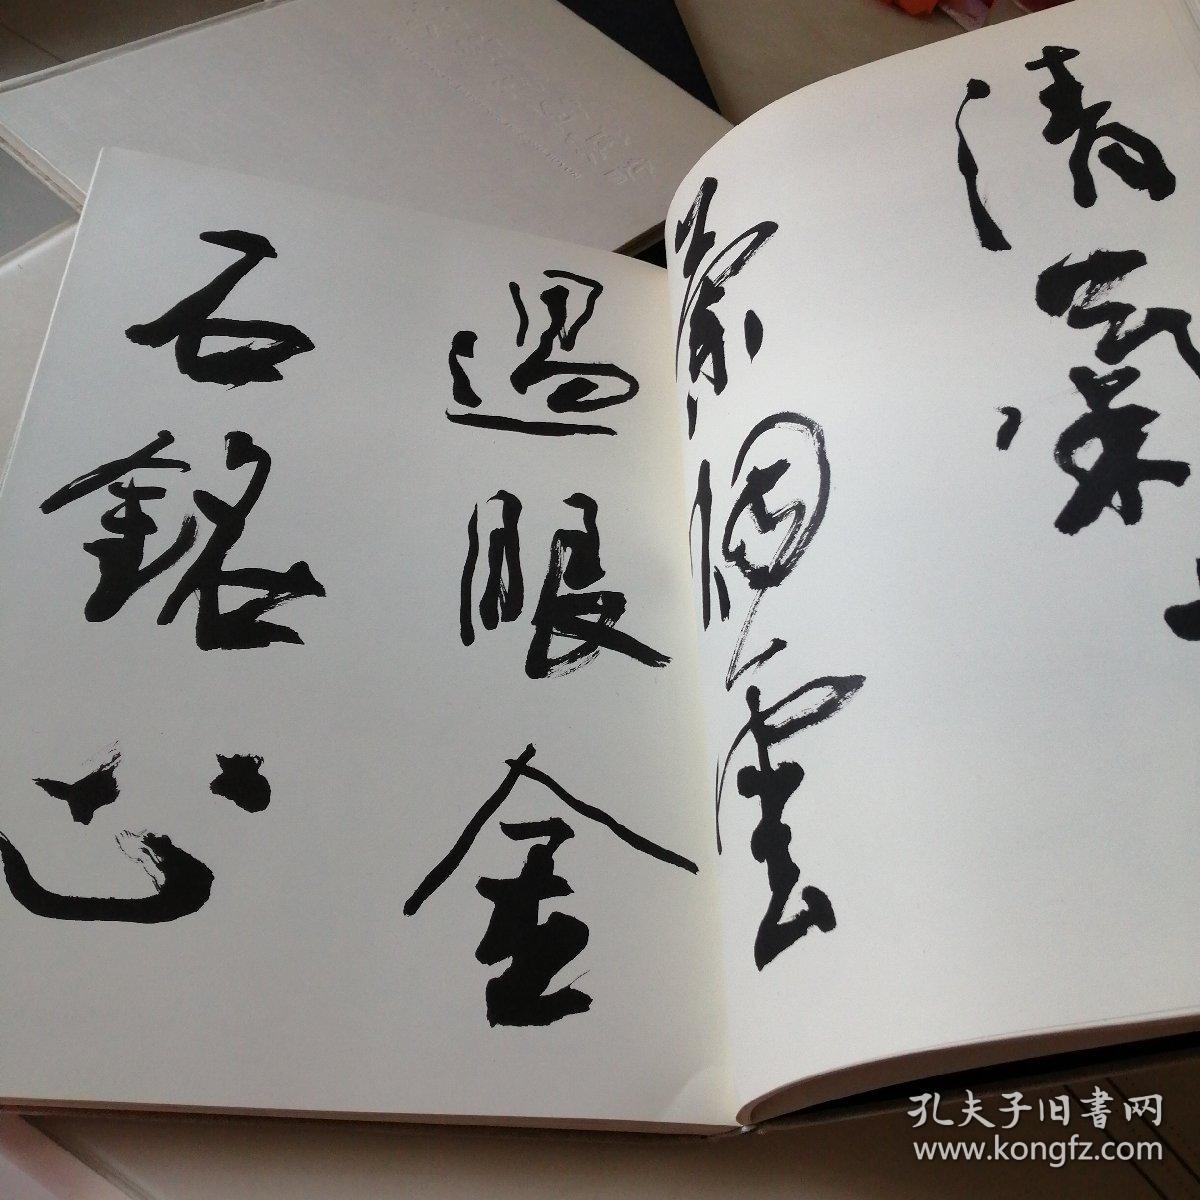 清氣
烟雲
過眼金
石銘心
孔夫子旧書网
www.kongfz.com